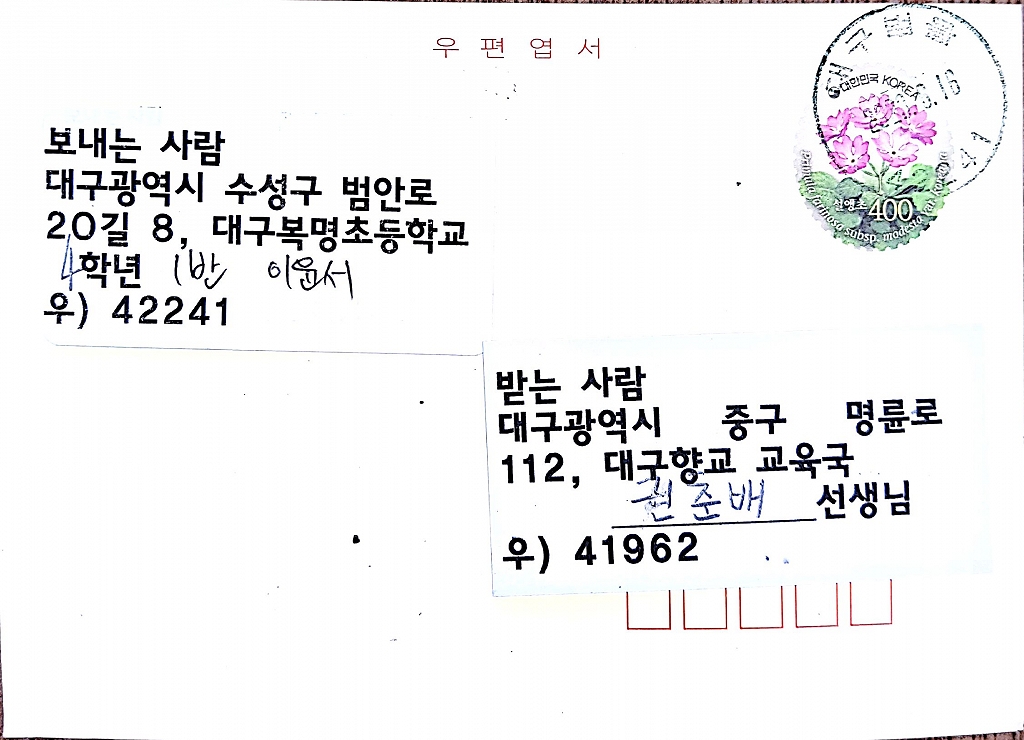 우편엽서
대한민국 KOREA
설앵초 400
보내는 사람
대구광역시 수성구 범안로
20길 8, 대구복명초등학교
4학년 1반 이윤서
우) 42241
받는 사람
대구광역시 중구 명륜로
112, 대구향교 교육국
권준배 선생님
우) 41962